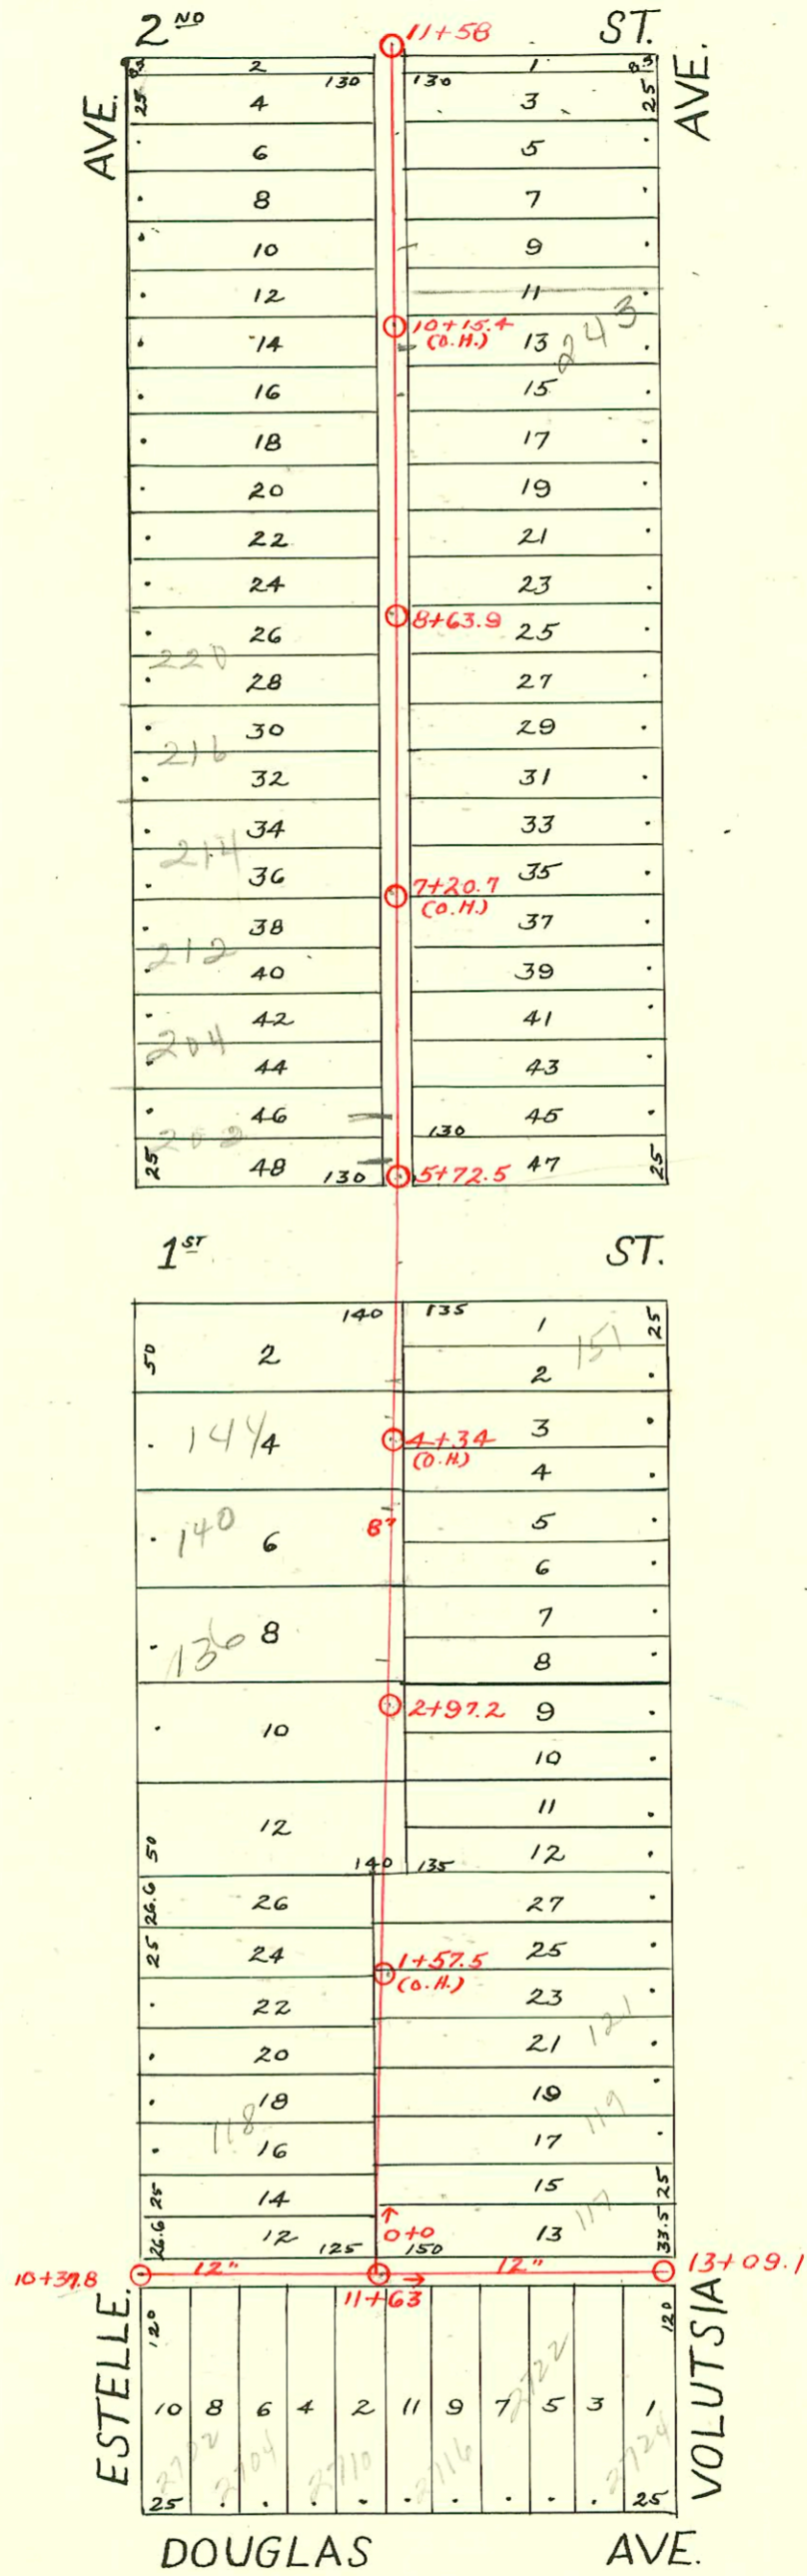 2ND ST.
11+58
AVE. AVE.
8.3 2 1 8.3
130 130
25 4 3 25
6 5
8 7
10 9
12 11
10+15.4
(O.H.)
14 13
243
16 15
18 17
20 19
22 21
24 23
8+63.9
26 25
220
28 27
30 29
216
32 31
34 33
214
36 35
7+20.7
(O.H.)
38 37
212
40 39
42 41
204
44 43
46 45
130
202
25 48 130 5+72.5 47 25
1ST ST.
140 135 1 25
50 2 151
2
144 4 3
4+34
(O.H.) 4
140 6 8" 5
6
136 8 7
8
2+97.2 9
10 10
11
50 12 12
140 135
26.6 26 27
25 24 25
1+57.5
(O.H.)
22 23
121
20 21
18 19
118 119
16 17
25 14 15 25
117
26.6 12 0+0 13 33.5
125 150
10+37.8 12" 12" 13+09.1
11+63
ESTELLE VOLUTSIA
120 120
10 8 6 4 2 11 9 7 5 3 1
2702 2704 2710 2716 2722 2724
25 25
DOUGLAS AVE.